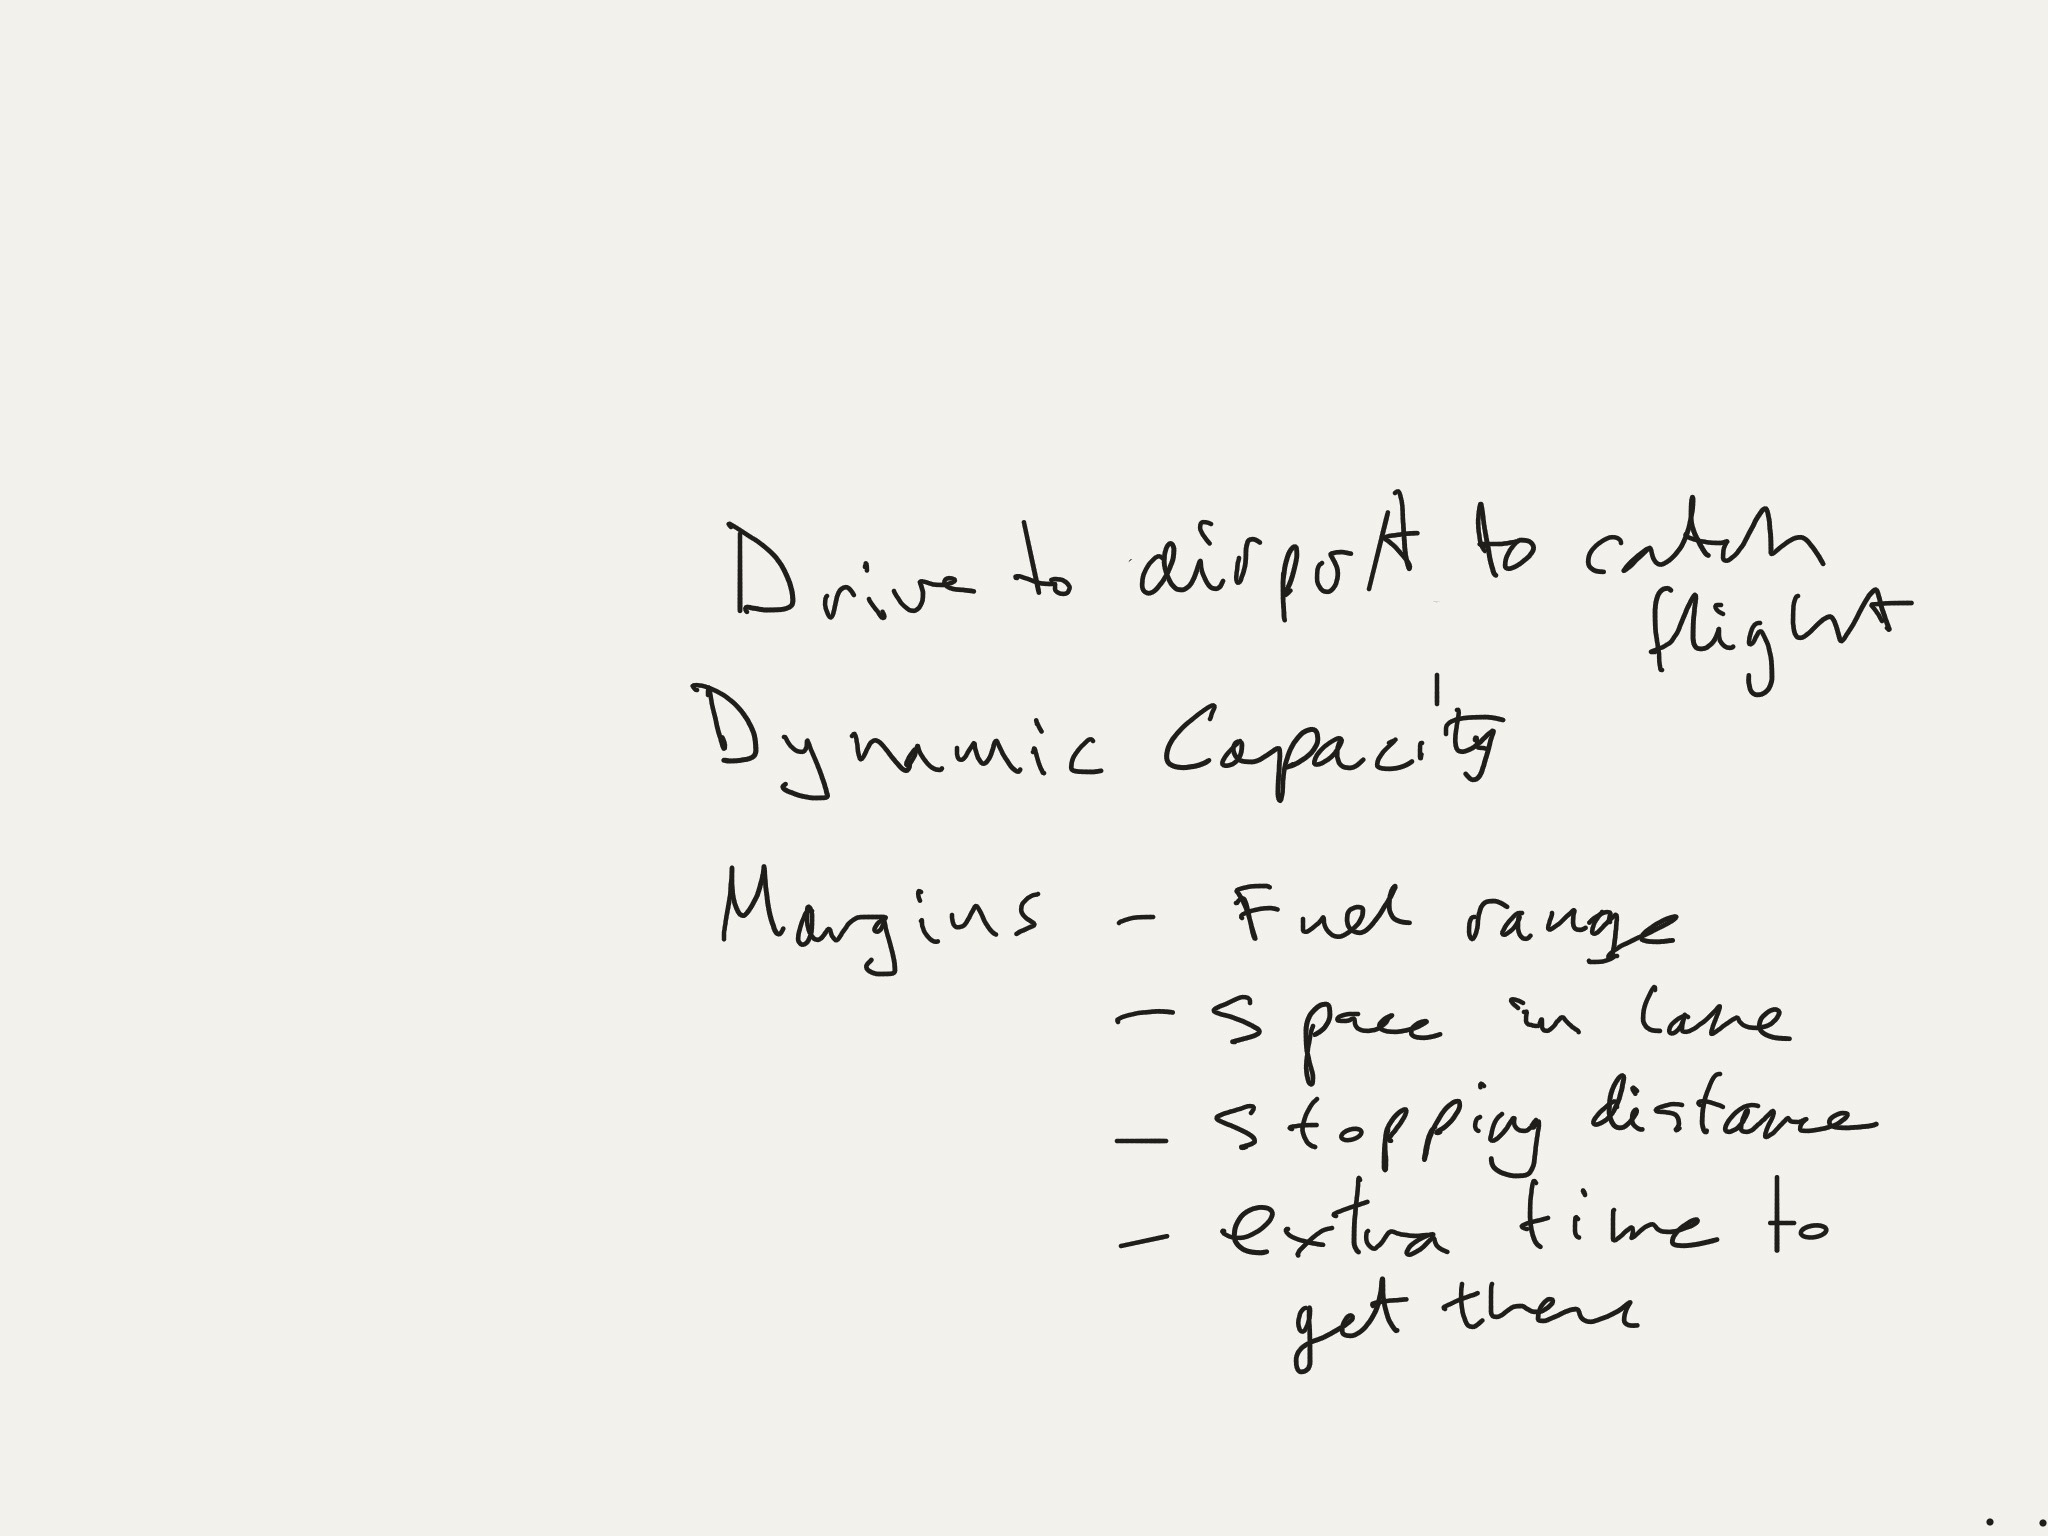 Drive to airport to catch
flight
Dynamic Capacity
Margins - Fuel range
- Space in lane
- Stopping distance
- extra time to
get there